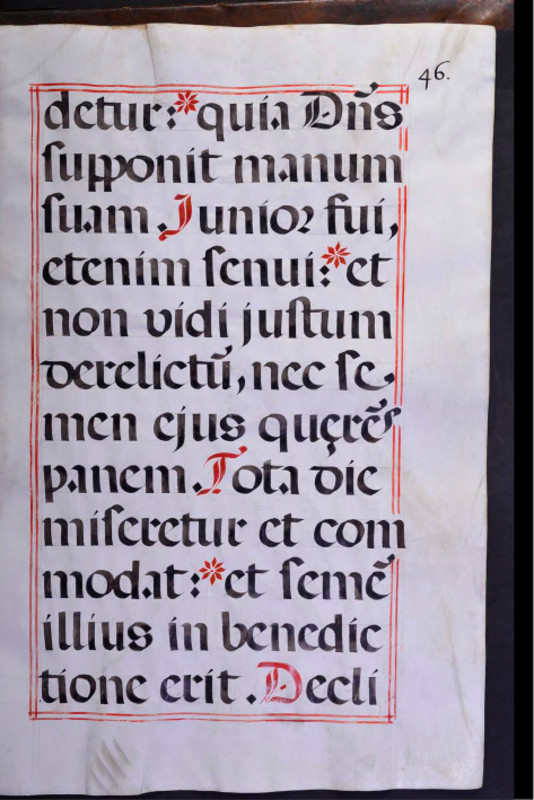 46.
detur:*quia Dn̄s
ſupponit manum
ſuam. Junior fui,
etenim ſenui:*et
non vidi juſtum
derelictū, nec ſe
men ejus quęrēs
panem. Tota die
miſeretur et com
modat:*et ſemē
illius in benedic
tione erit. Decli